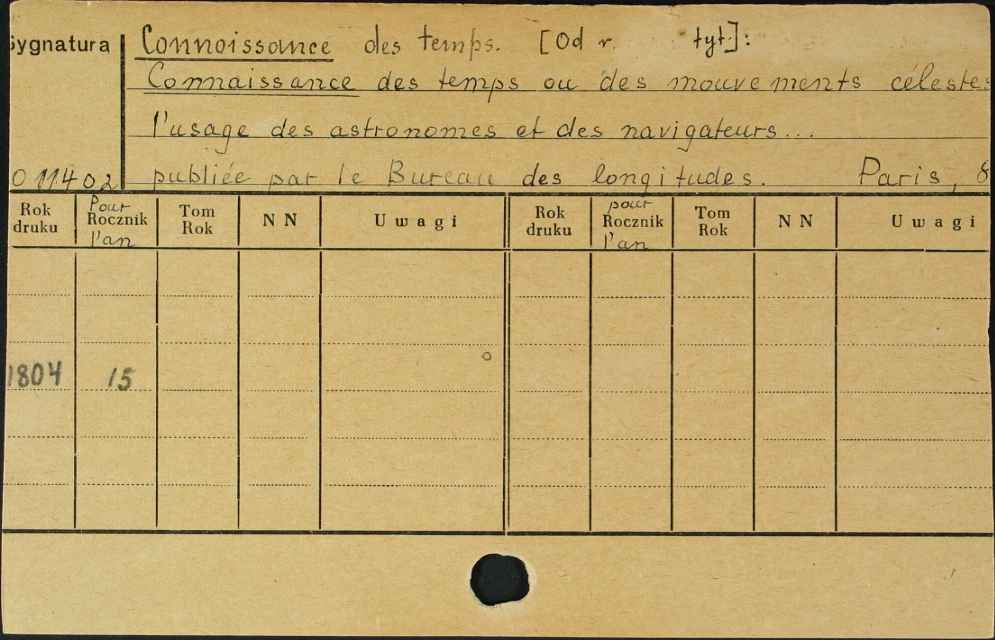 Sygnatura Connoissance des temps. [Od r. tyt.]:
Connaissance des temps ou des mouvements célestes
l'usage des astronomes et des navigateurs...
011402 publiée par le Bureau des longitudes. Paris, 8
Rok druku Pour Rocznik l'an Tom Rok NN Uwagi Rok druku pour Rocznik l'an Tom Rok NN Uwagi
1804 15